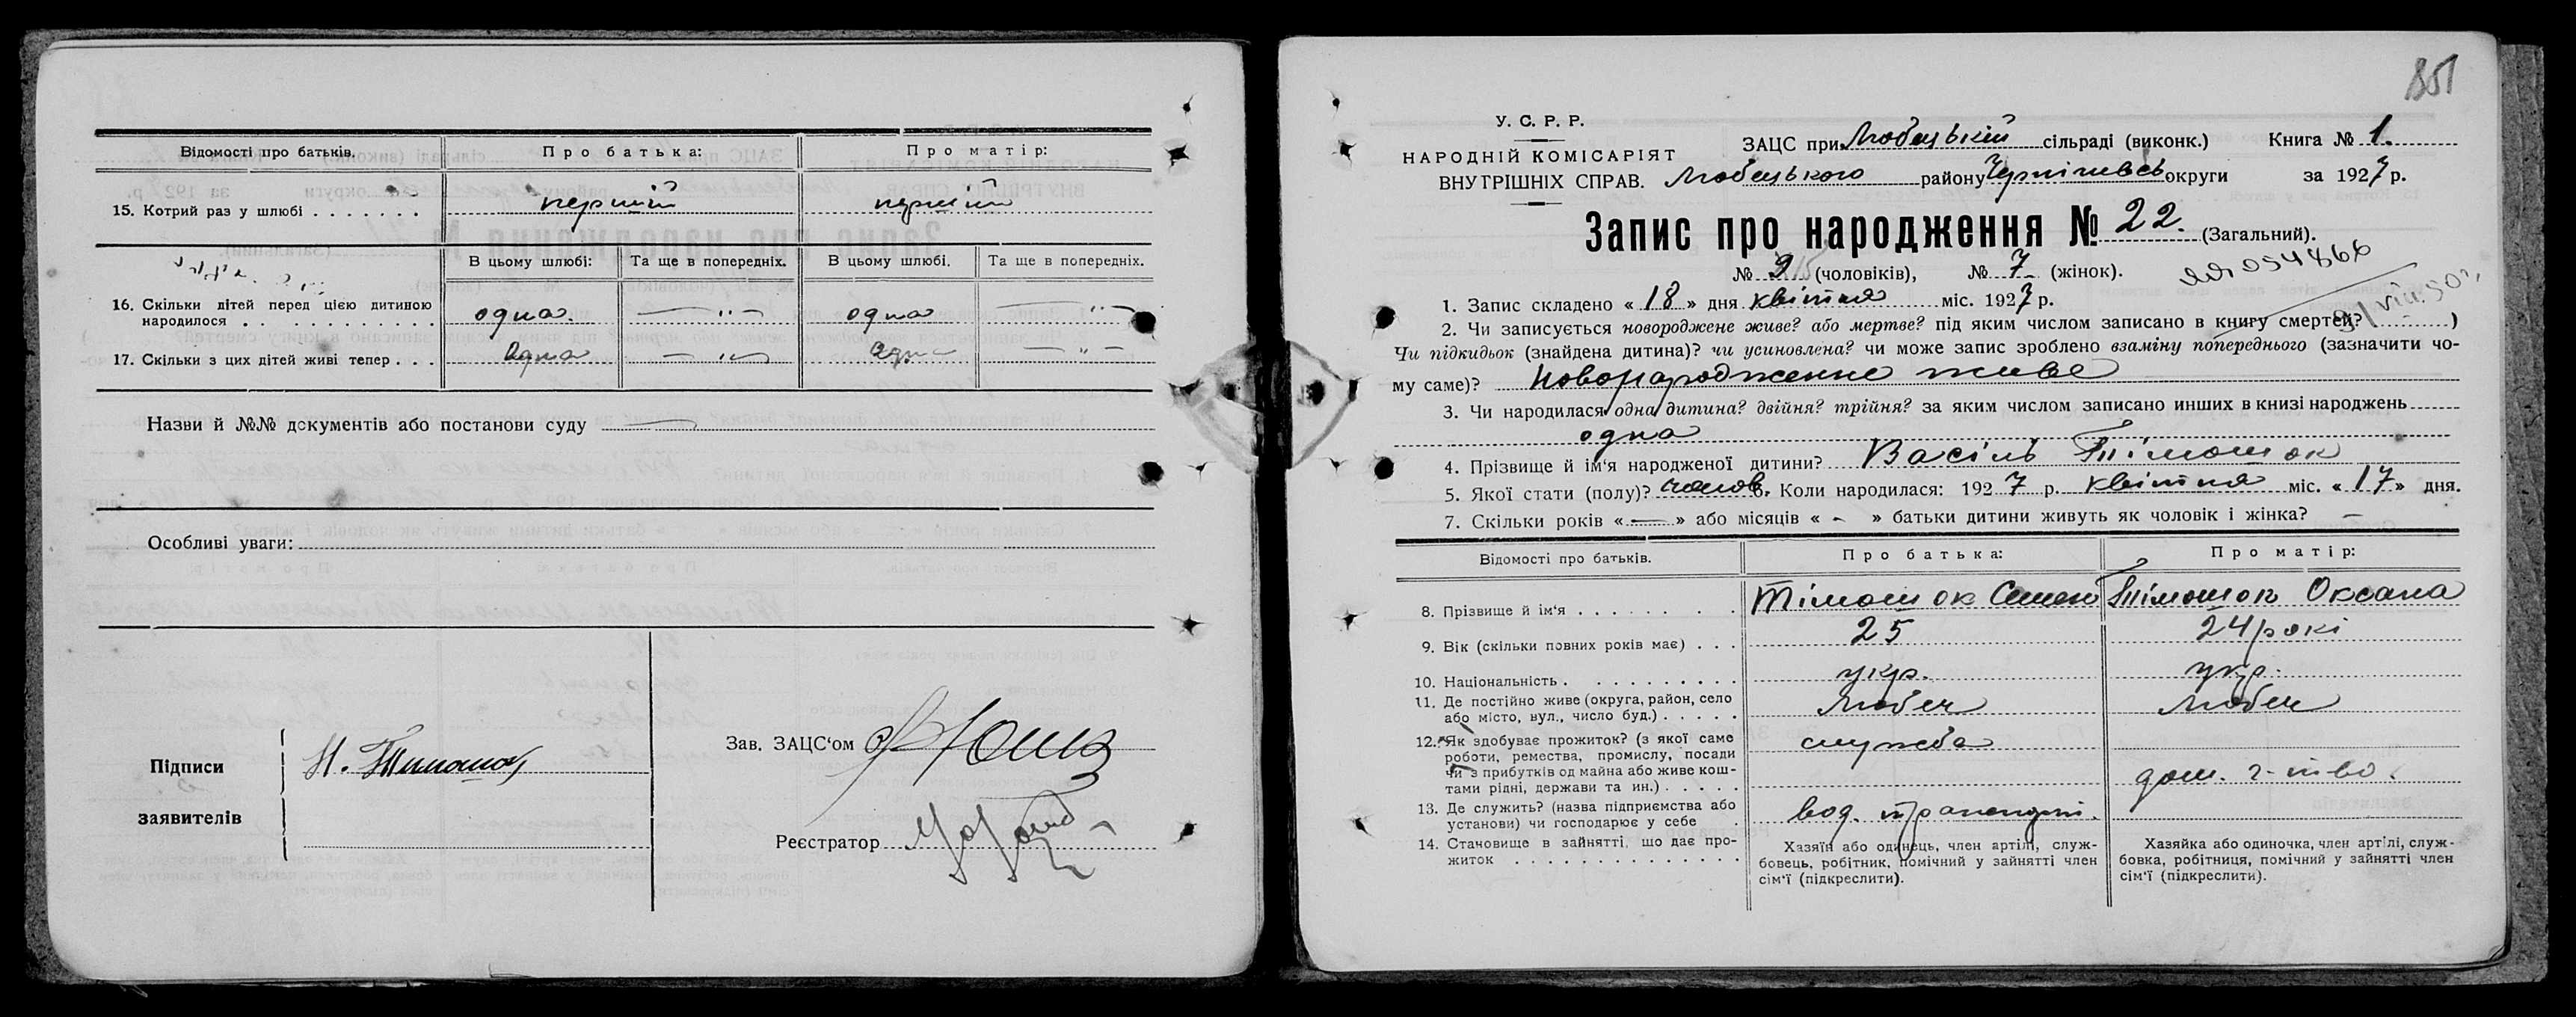 Відомості про батьків. Про батька: Про матір:
15. Котрий раз у шлюбі . . . . . . . перший перший
В цьому шлюбі: Та ще в попередніх. В цьому шлюбі. Та ще в попередніх.
16. Скільки дітей перед цією дитиною
народилося . . . . . . . . . . . одна. — „ — одна — „ —
17. Скільки з цих дітей живі тепер . . . одна — „ — одна — „ —
Назви й №№ документів або постанови суду —
Особливі уваги:
Підписи
заявителів
Н. Тимошок
Зав. ЗАЦС‘ом
Реєстратор
851
У. С. Р. Р.
НАРОДНІЙ КОМІСАРІЯТ
ВНУТРІШНІХ СПРАВ.
ЗАЦС при Любецькій сільраді (виконк.) Книга № 1.
Любецького району Чернігівсь округи за 1927 р.
Запис про народження № 22. (Загальний).
№ 9 15 (чоловіків), № 7 (жінок).
ЯЯ 054866
31/VIII.50 г.
1. Запис складено « 18 » дня квітня міс. 1927 р.
2. Чи записується новороджене живе? або мертве? під яким числом записано в книгу смертей? )
Чи підкидьок (знайдена дитина)? чи усиновлена? чи може запис зроблено взаміну попереднього (зазначити чо-
му саме)? новонародженне живе
3. Чи народилася одна дитина? двійня? трійня? за яким числом записано инших в книзі народжень
одна
4. Прізвище й ім‘я народженої дитини? Васіль Тімошок
5. Якої стати (полу)? чолов. 6. Коли народилася: 1927 р. квітня міс. « 17 » дня.
7. Скільки років « — » або місяців « - » батьки дитини живуть як чоловік і жінка? —
Відомості про батьків. Про батька: Про матір:
8. Прізвище й ім‘я . . . . . . . . Тімошок Семен Тімошок Оксана
9. Вік (скільки повних років має) . . . 25 24 рокі
10. Національність . . . . . . . . . . укр. укр.
11. Де постійно живе (округа, район, село
або місто, вул., число буд.) . . . . . Любеч Любеч
12. Як здобуває прожиток? (з якої саме
роботи, ремества, промислу, посади
чи з прибутків од майна або живе кош-
тами рідні, держави та ин.) . . . . .
служба
дом. г-тво.
13. Де служить? (назва підприємства або
установи) чи господарює у себе .
вод. транспорт.
14. Становище в зайнятті, що дає про-
житок . . . . . . . . . . . . . . .
Хазяїн або одинець, член артілі, служ-
бовець, робітник, помічний у зайнятті член
сім‘ї (підкреслити).
Хазяйка або одиночка, член артілі, служ-
бовка, робітниця, помічний у зайнятті член
сім‘ї (підкреслити).